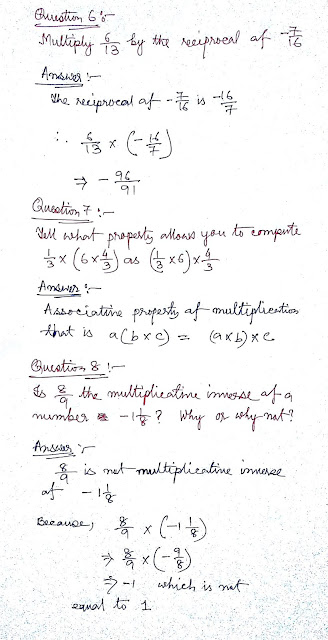 Question 6 :-
Multiply 6/13 by the reciprocal of -7/16
Answer :-
The reciprocal of -7/16 is -16/7
∴ 6/13 × (-16/7)
⇒ - 96/91
Question 7 :-
Tell what property allows you to compute
1/3 × (6 × 4/3) as (1/3 × 6) × 4/3
Answer :-
Associative property of multiplication
that is a(b×c) = (a×b)×c
Question 8 :-
Is 8/9 the multiplicative inverse of a
number -1 1/8 ? Why or why not?
Answer :-
8/9 is not multiplicative inverse
of -1 1/8
Because, 8/9 × (-1 1/8)
⇒ 8/9 × (-9/8)
⇒ -1 which is not
equal to 1